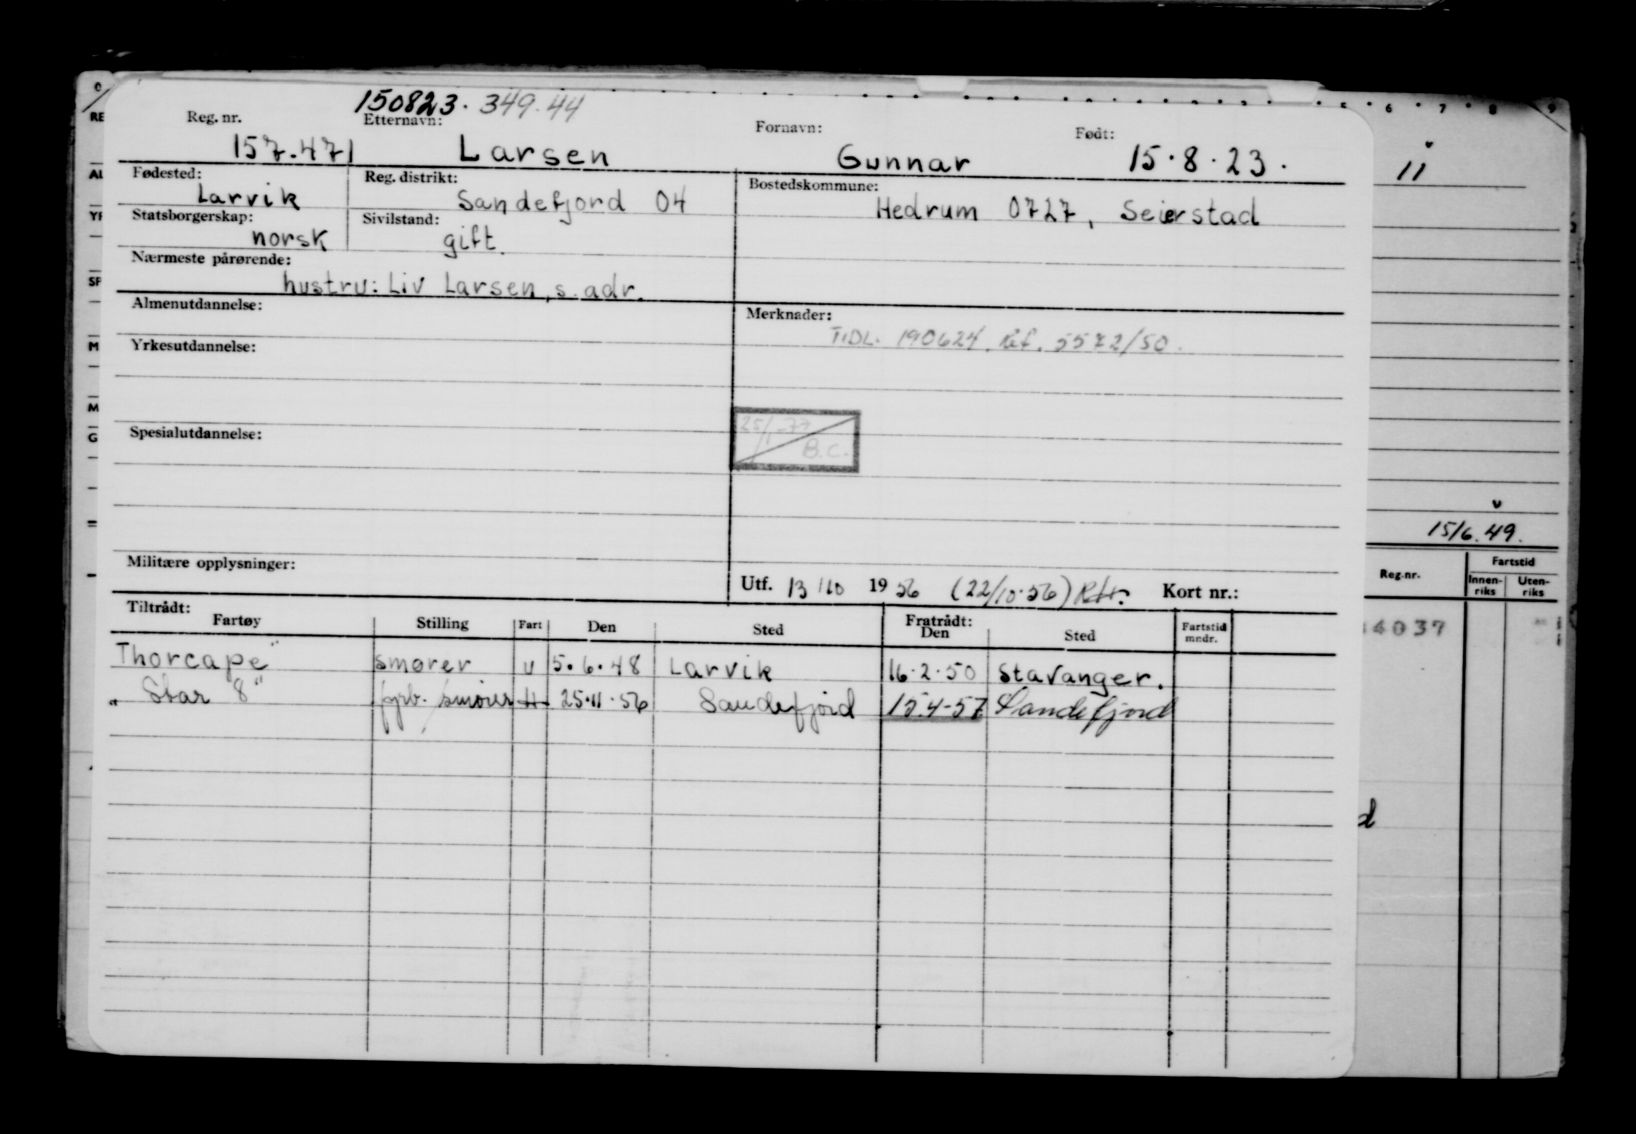 150823. 349.44
Reg. nr. Etternavn: Fornavn: Født:
157.471 Larsen Gunnar 15.8.23.
Fødested: Reg. distrikt: Bostedskommune:
Larvik Sandefjord 04 Hedrum 0727, Seierstad
Statsborgerskap: Sivilstand:
norsk gift.
Nærmeste pårørende:
hustru: Liv Larsen, s. adr.
Almenutdannelse: Merknader:
TIDL. 190624. Ref. 5572/50.
Yrkesutdannelse:
25/1-77
B.C.
Spesialutdannelse:
Militære opplysninger:
Utf. 13/10 1956 (22/10-56) Kort nr.:
Tiltrådt: Fratrådt:
Fartøy Stilling Fart Den Sted Den Sted Fartstid mndr.
Thorcape" smører u 5.6.48 Larvik 16.2.50 Stavanger.
" Star 8" fyrb./smører H 25.11.56 Sandefjord 15.4-57 Sandefjord
5 6 7 8 9
11
15/6.49.
Reg.nr. Fartstid
Innen-riks Uten-riks
4037
d